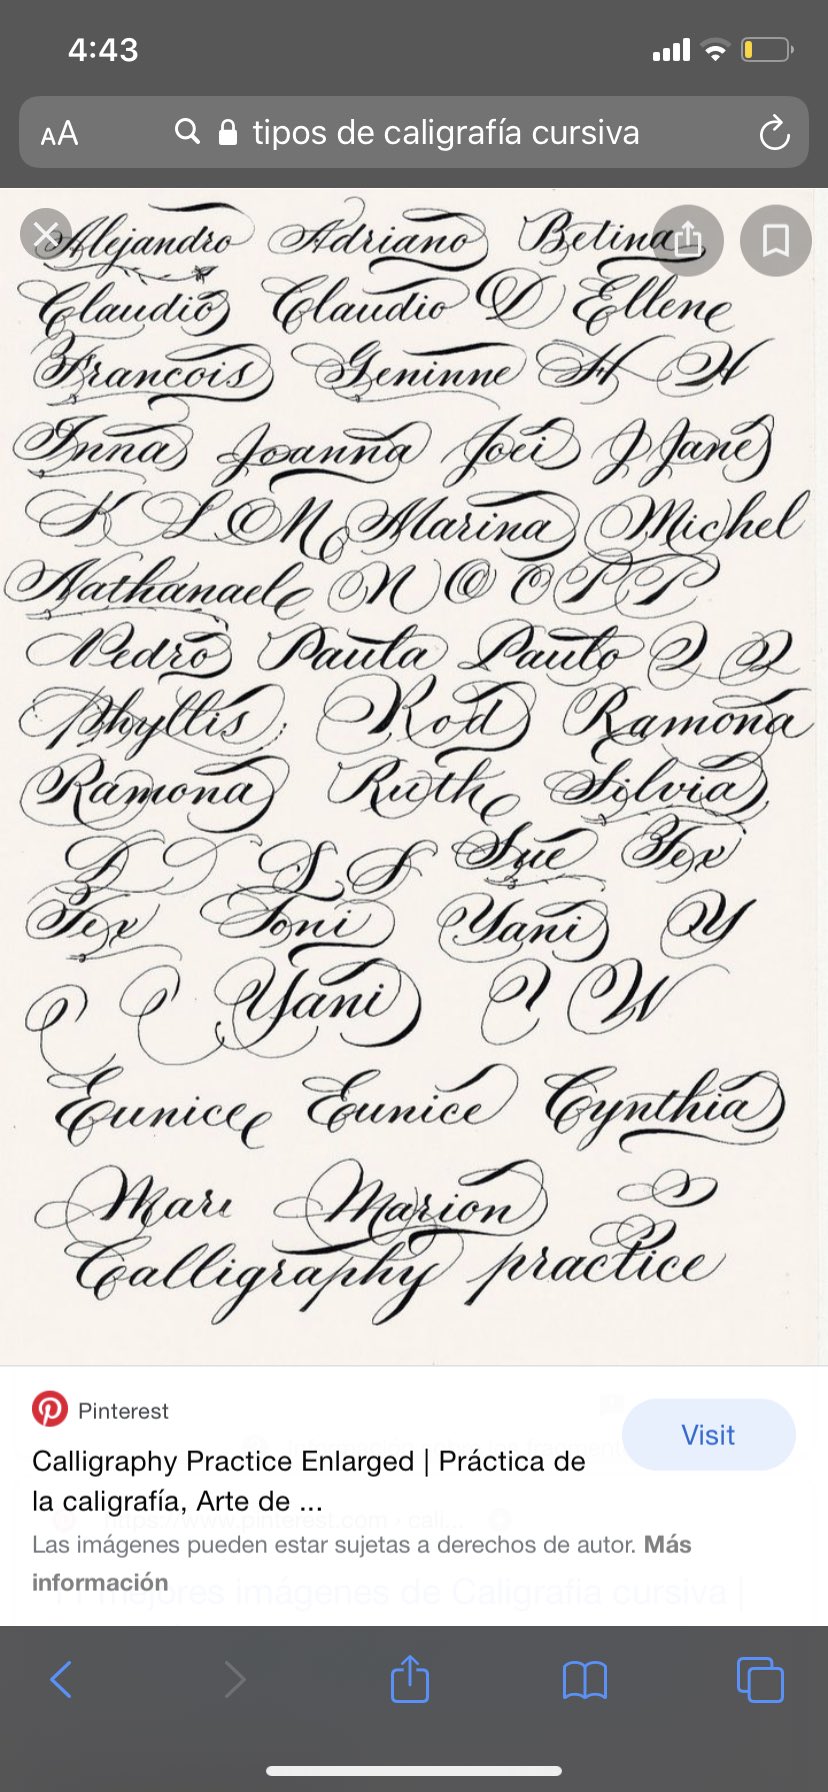 4:43
AA tipos de caligrafía cursiva
Alejandro Adriano Betina
Claudio Claudio D Ellene
Francois Geninne H H
Inna Joanna Joei J Jane
K L M Marina Michel
Nathanael N O O P P
Pedro Paula Paulo Q Q
Phyllis Rod Ramona
Ramona Ruth Silvia
S S Sue Tex
Tex Toni Yani Y
Yani W
Eunice Eunice Cynthia
Mari Marion
Calligraphy practice
Pinterest
Visit
Calligraphy Practice Enlarged | Práctica de
la caligrafía, Arte de ...
Las imágenes pueden estar sujetas a derechos de autor. Más
información